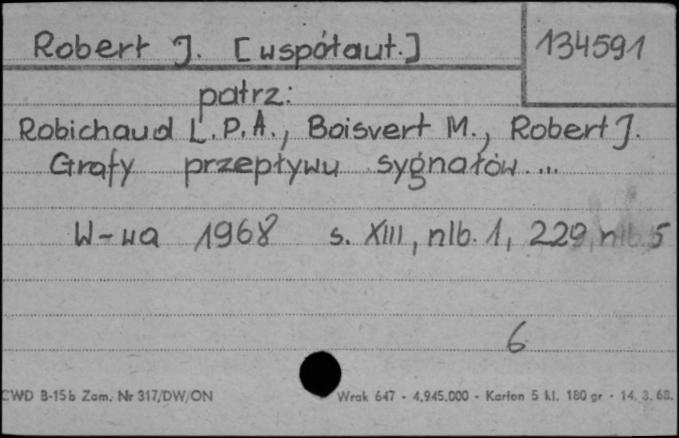 Robert J. [współaut.]
134591
patrz:
Robichaud L.P.A., Boisvert M., Robert J.
Grafy przepływu sygnałów...
W-wa 1968 s. XIII, nlb. 1, 229, nlb. 5
6
CWD B-15b Zam. Nr 317/DW/ON
Wrak 647 - 4.945.000 - Karton 5 kl. 180 gr - 14. 3. 68.